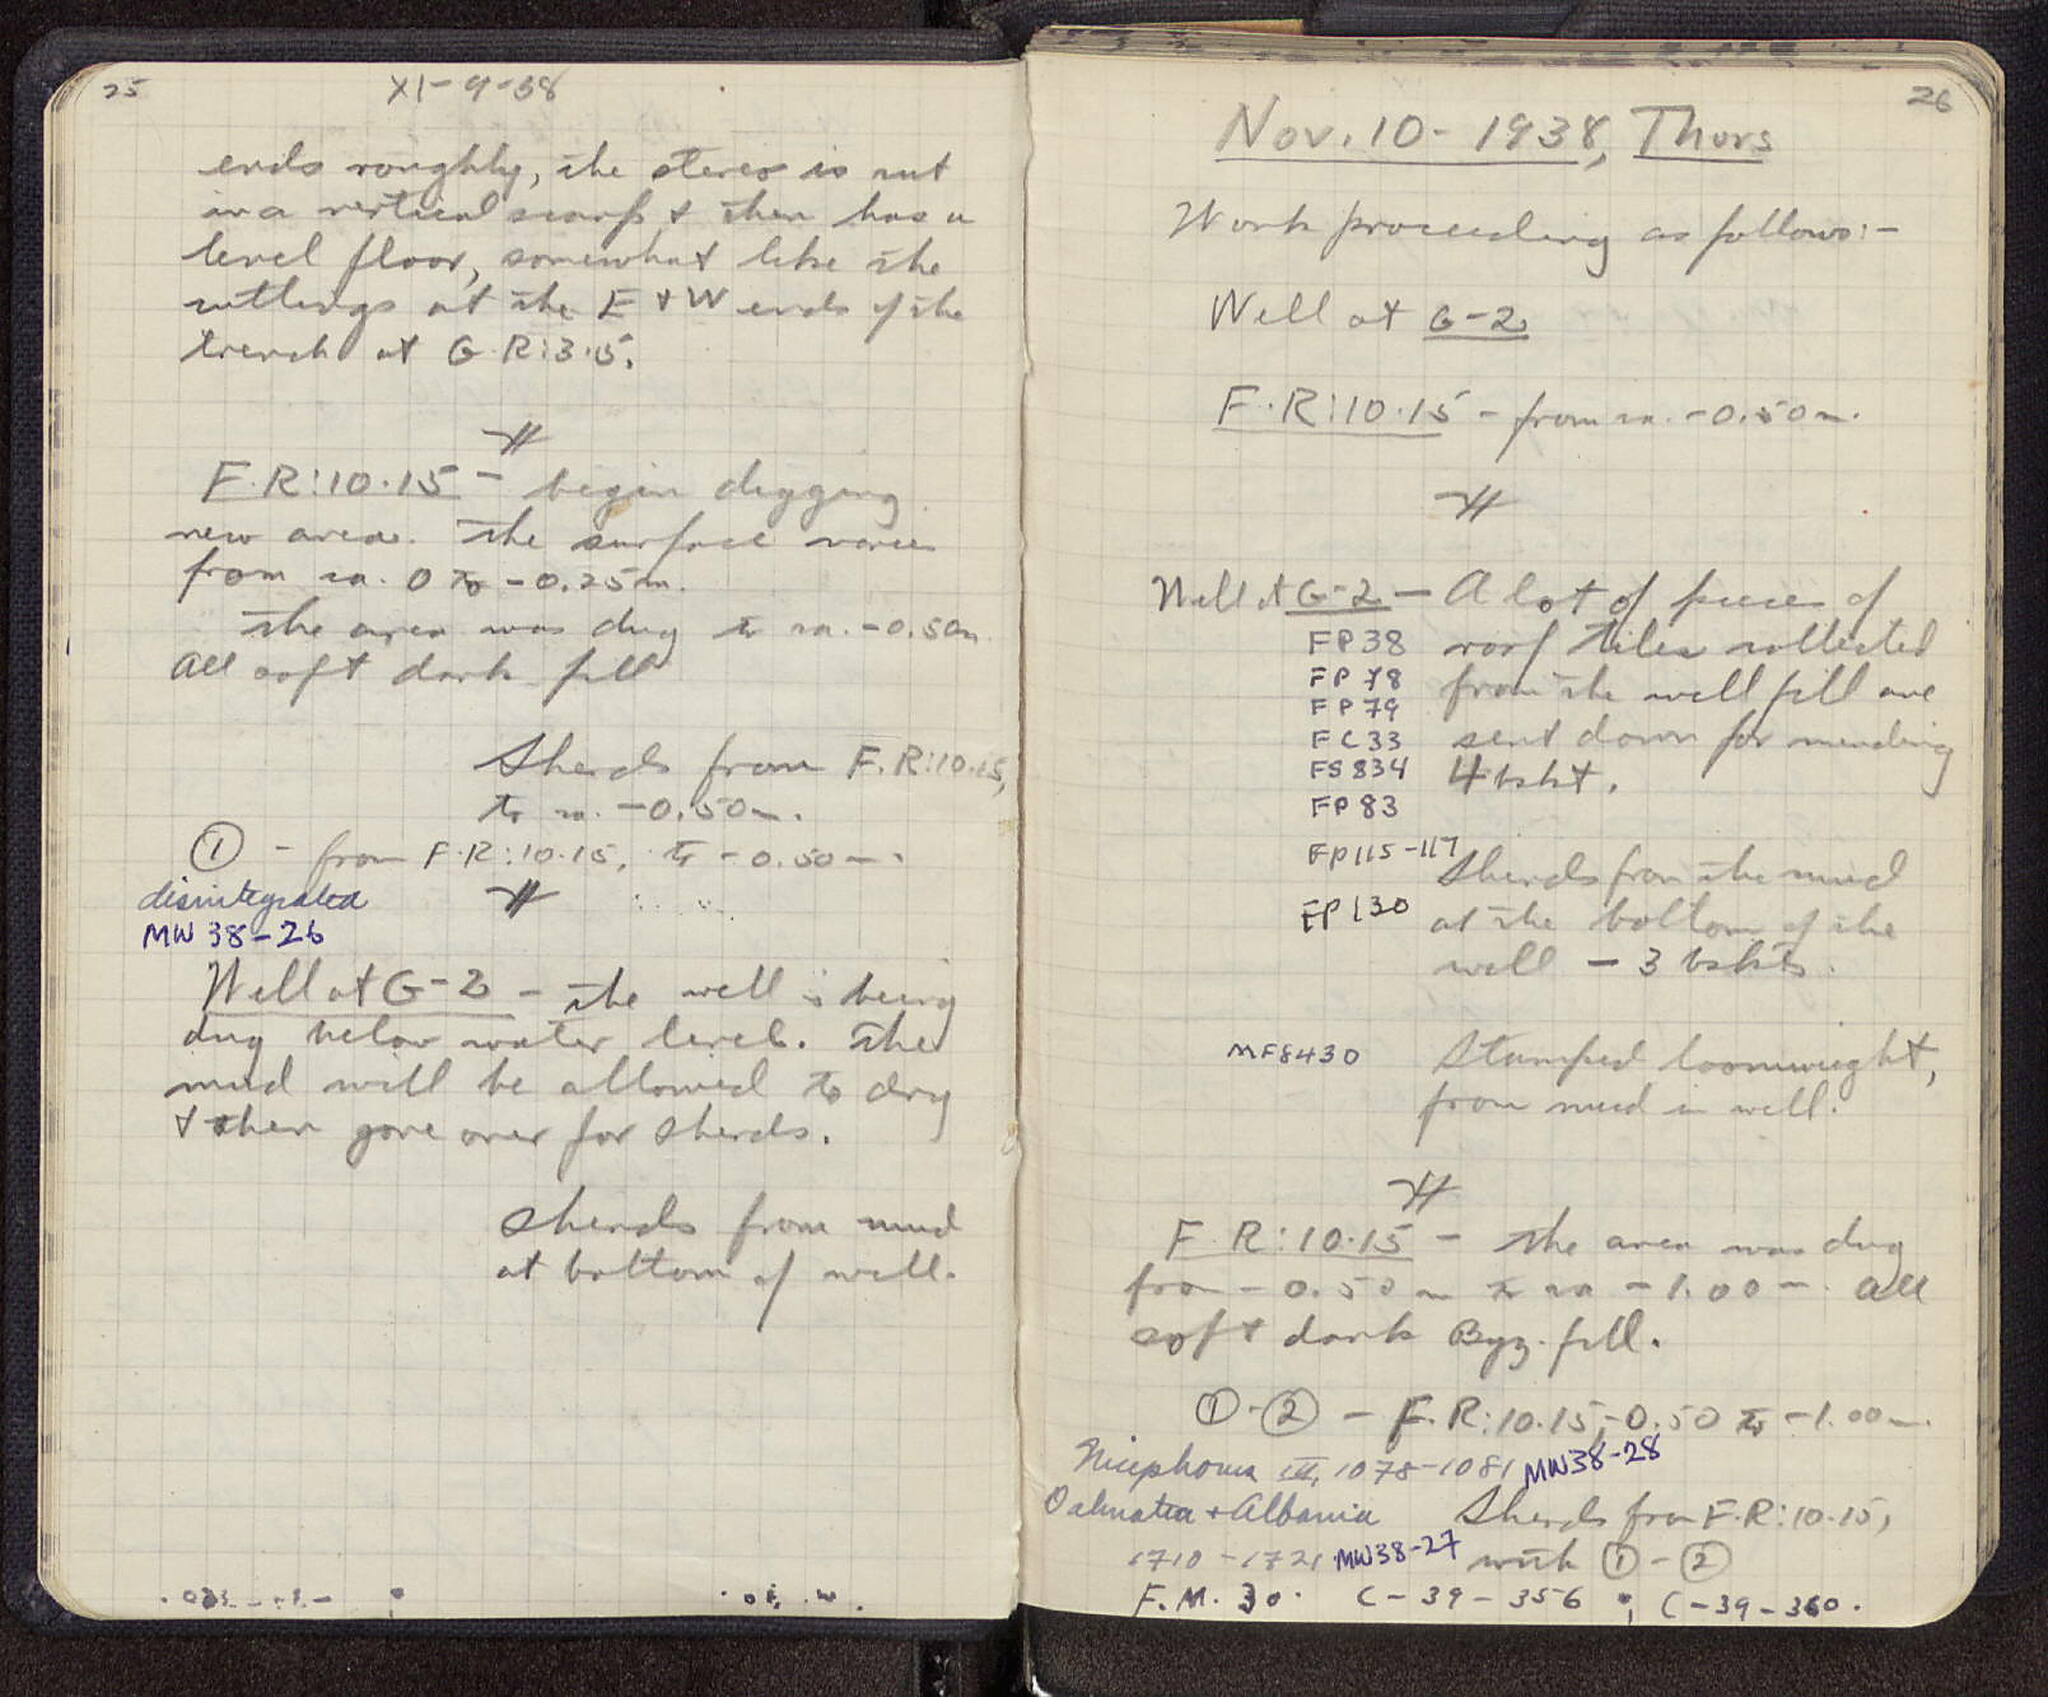 25
XI-9-38
ends roughly, the stereo is cut
in a vertical scarp & then has a
level floor, somewhat like the
cuttings at the E & W ends of the
trench at G.R:3.5.
F.R:10.15 - begin digging
new area. The surface varies
from ca. 0 to -0.25m.
The area was dug to ca. -0.50m.
All soft dark fill
Sherds from F.R:10.15,
to ca. -0.50m.
① - from F.R:10.15, to -0.50m.
disintegrated
MW 38-26
Well at G-2 - the well is being
dug below water level. The
mud will be allowed to dry
& then gone over for sherds.
Sherds from mud
at bottom of well.
26
Nov. 10 - 1938, Thurs
Work proceeding as follows:-
Well at G-2
F.R:10.15 - from ca. -0.50m.
Well at G-2 - A lot of pieces of
FP38 roof tiles collected
FP78 from the well fill are
FP79
FC33 sent down for mending
FS834 4 bskt.
FP83
FP115-117 Sherds from the mud
FP130 at the bottom of the
well - 3 bskts.
MF8430 Stamped loomweight,
from mud in well.
F.R:10.15 - The area was dug
from -0.50m to ca -1.00m. All
soft dark Byz. fill.
①-② - F.R:10.15, -0.50 to -1.00m.
Nicephorus III, 1078-1081 MW38-28
Dalmatia & Albania Sherds from F.R:10.15,
1710-1721 MW38-27 with ①-②
F.M. 30. C-39-356; C-39-360.